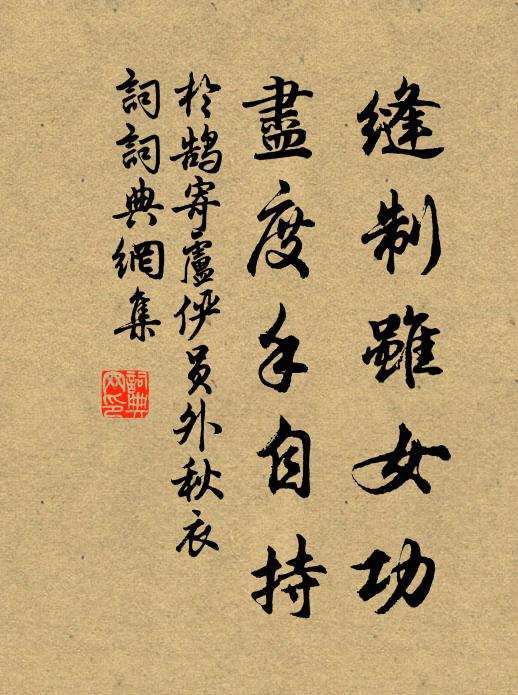 縫制雖女功
盡度手自持
於鵠寄盧儼員外秋衣
詞詞典網集
詞典
网印